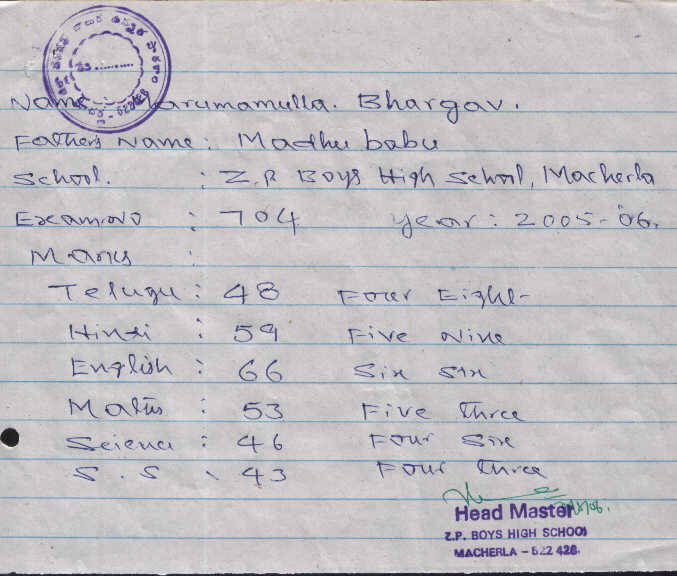 Name : Marumamulla. Bhargav.
Father's Name : Madhu babu
School. : Z.P. Boys High School, Macherla
Exam.No : 704 year : 2005-06.
Marks :
Telugu : 48 Four Eight
Hindi : 59 Five Nine
English : 66 Six Six
Maths : 53 Five three
Science : 46 Four Six
S.S : 43 Four three
Head Master
Z.P. BOYS HIGH SCHOOL
MACHERLA - 522 426.